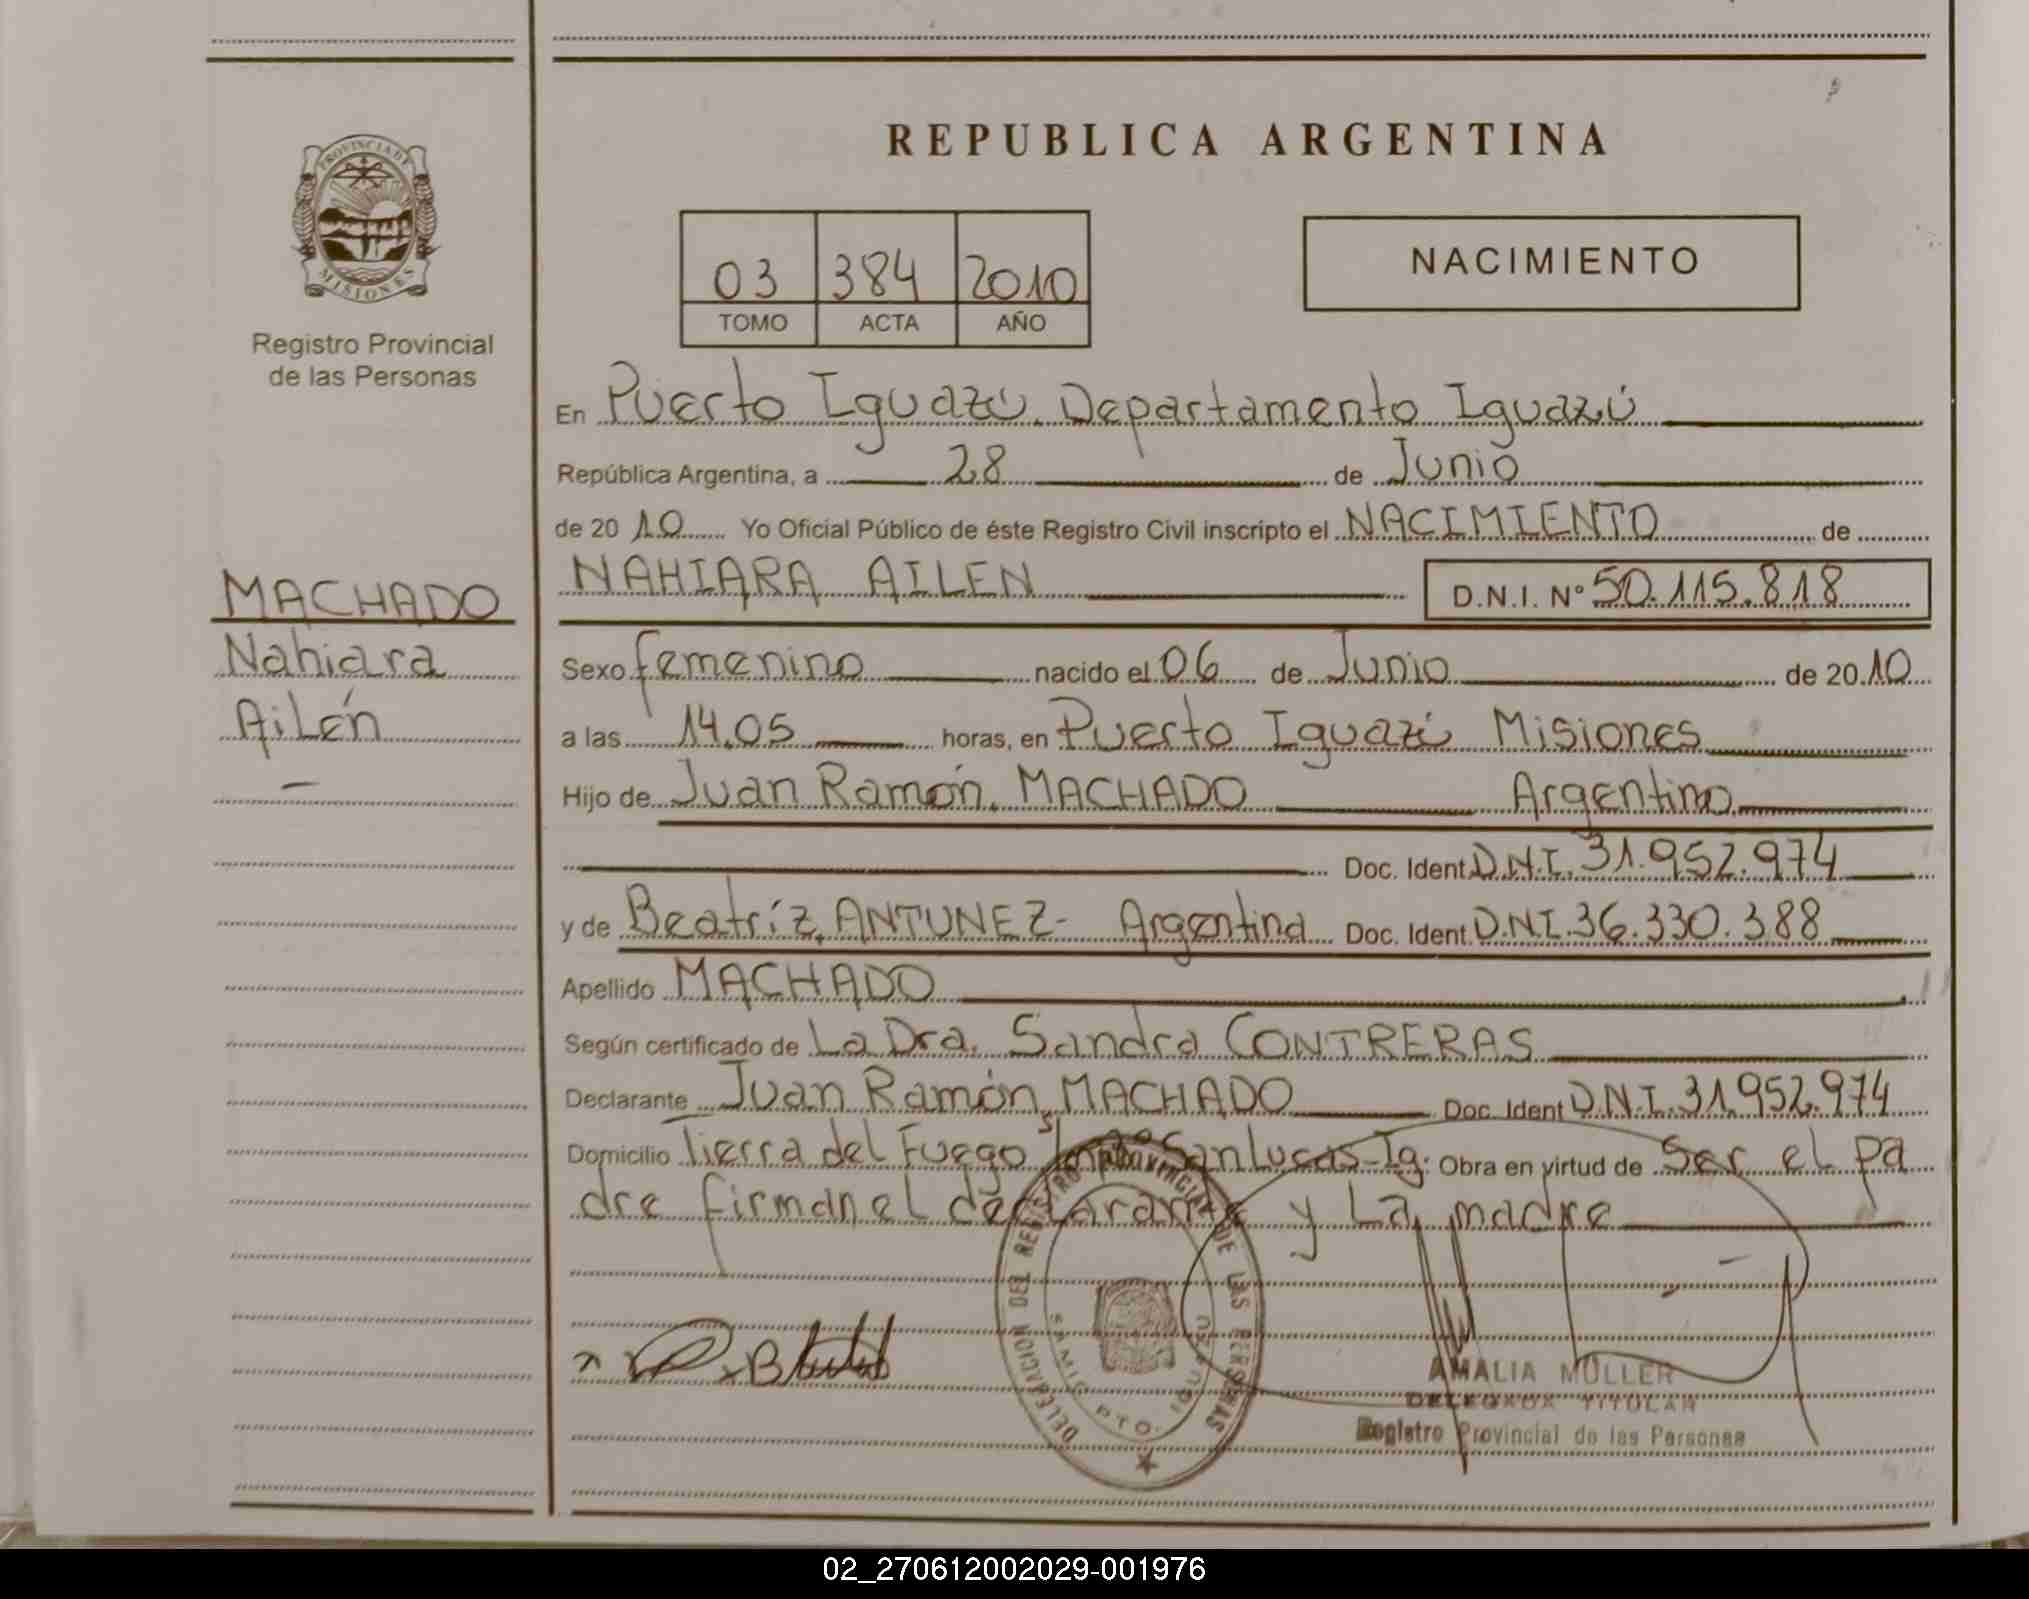 REPUBLICA ARGENTINA
PROVINCIA DE MISIONES
Registro Provincial
de las Personas
03 384 2010
TOMO ACTA AÑO
NACIMIENTO
MACHADO
Nahiara
Ailén
En Puerto Iguazú, Departamento Iguazú
República Argentina, a 28 de Junio
de 2010 Yo Oficial Público de éste Registro Civil inscripto el NACIMIENTO de
NAHIARA AILEN D.N.I. Nº 50.115.818
Sexo femenino nacido el 06 de Junio de 2010
a las 14,05 horas, en Puerto Iguazú Misiones
Hijo de Juan Ramón, MACHADO Argentino
Doc. Ident. D.N.I. 31.952.974
y de Beatríz, ANTUNEZ- Argentina Doc. Ident. D.N.I. 36.330.388
Apellido MACHADO
Según certificado de La Dra. Sandra CONTRERAS
Declarante Juan Ramón, MACHADO Doc. Ident D.N.I. 31.952.974
Domicilio Tierra del Fuego San Lucas-Ig. Obra en virtud de Ser el pa
dre firman el declarante y La madre
DELEGACION DEL REGISTRO PROVINCIAL DE LAS PERSONAS
PTO. IGUAZU
AMALIA MÜLLER
DELEGADA TITULAR
Registro Provincial de las Personas
02_270612002029-001976